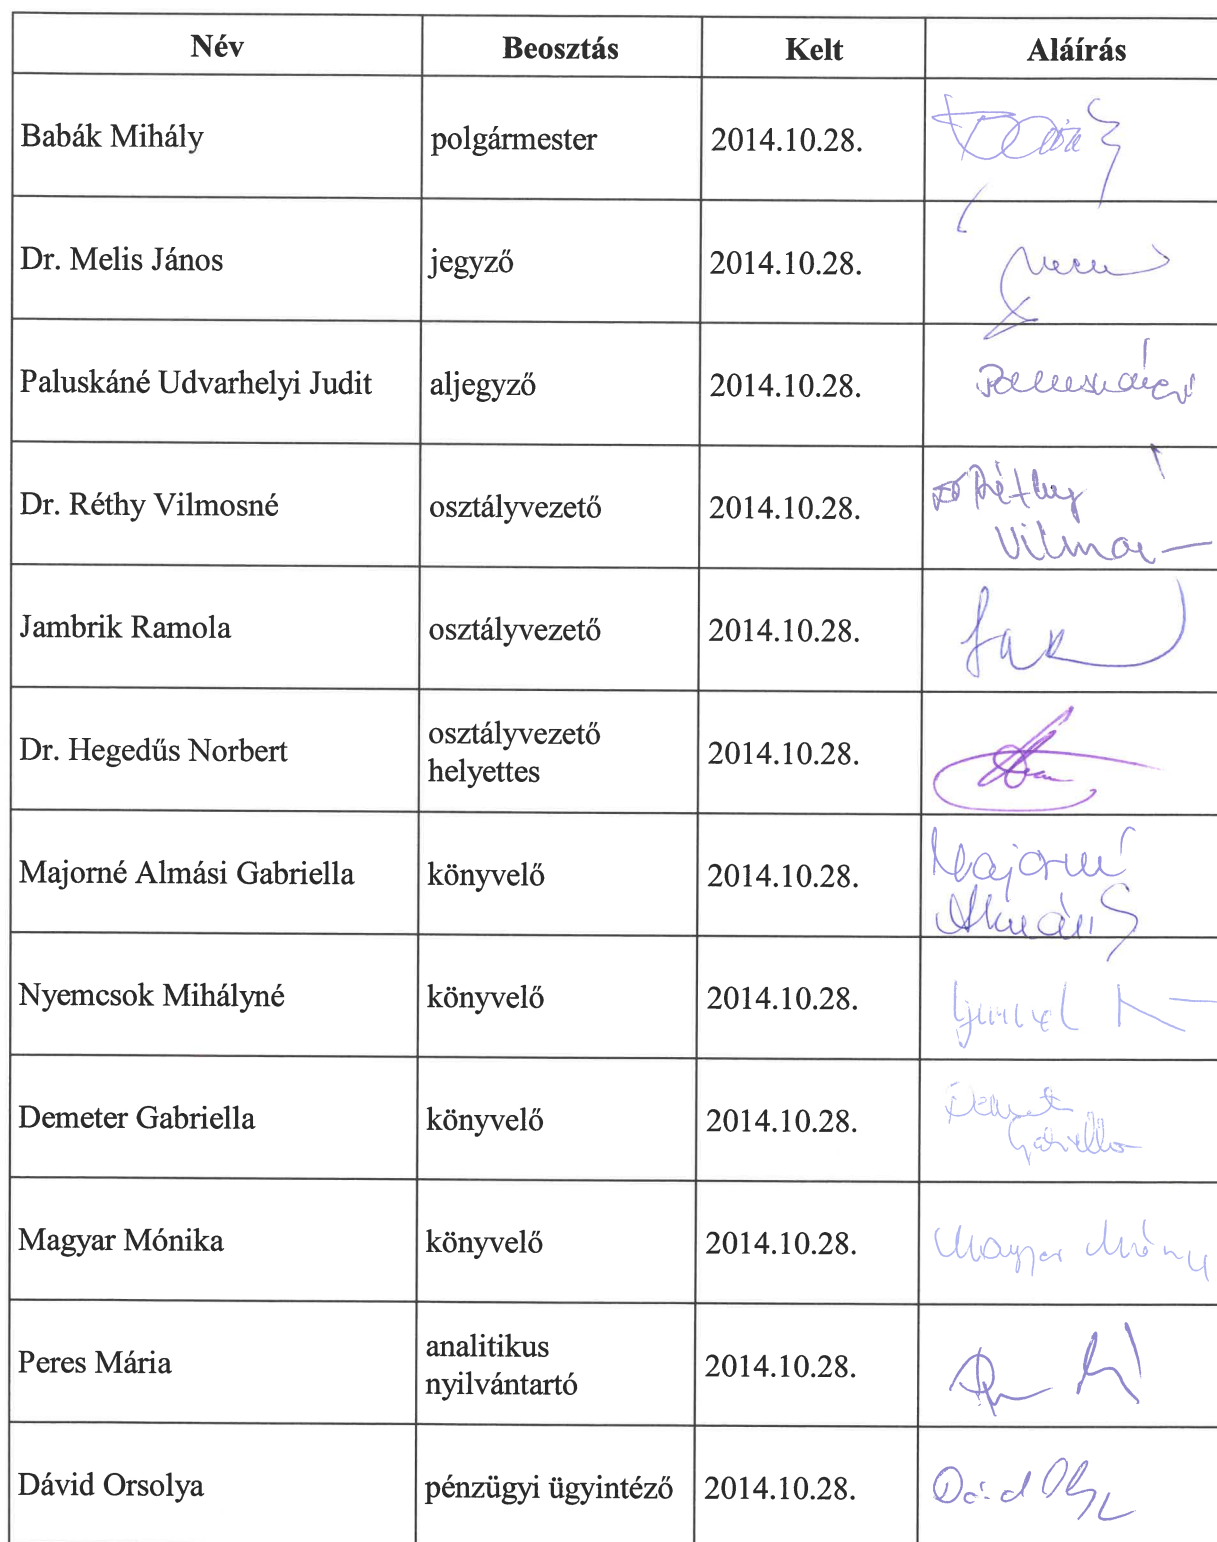 Név Beosztás Kelt Aláírás
Babák Mihály polgármester 2014.10.28.
Dr. Melis János jegyző 2014.10.28.
Paluskáné Udvarhelyi Judit aljegyző 2014.10.28.
Dr. Réthy Vilmosné osztályvezető 2014.10.28. Réthy
Jambrik Ramola osztályvezető 2014.10.28.
Dr. Hegedűs Norbert osztályvezető
helyettes 2014.10.28.
Majorné Almási Gabriella könyvelő 2014.10.28. Majorné
Almási
Nyemcsok Mihályné könyvelő 2014.10.28.
Demeter Gabriella könyvelő 2014.10.28.
Gabriella
Magyar Mónika könyvelő 2014.10.28. Magyar
Peres Mária analitikus
nyilvántartó 2014.10.28.
Dávid Orsolya pénzügyi ügyintéző 2014.10.28. Dávid